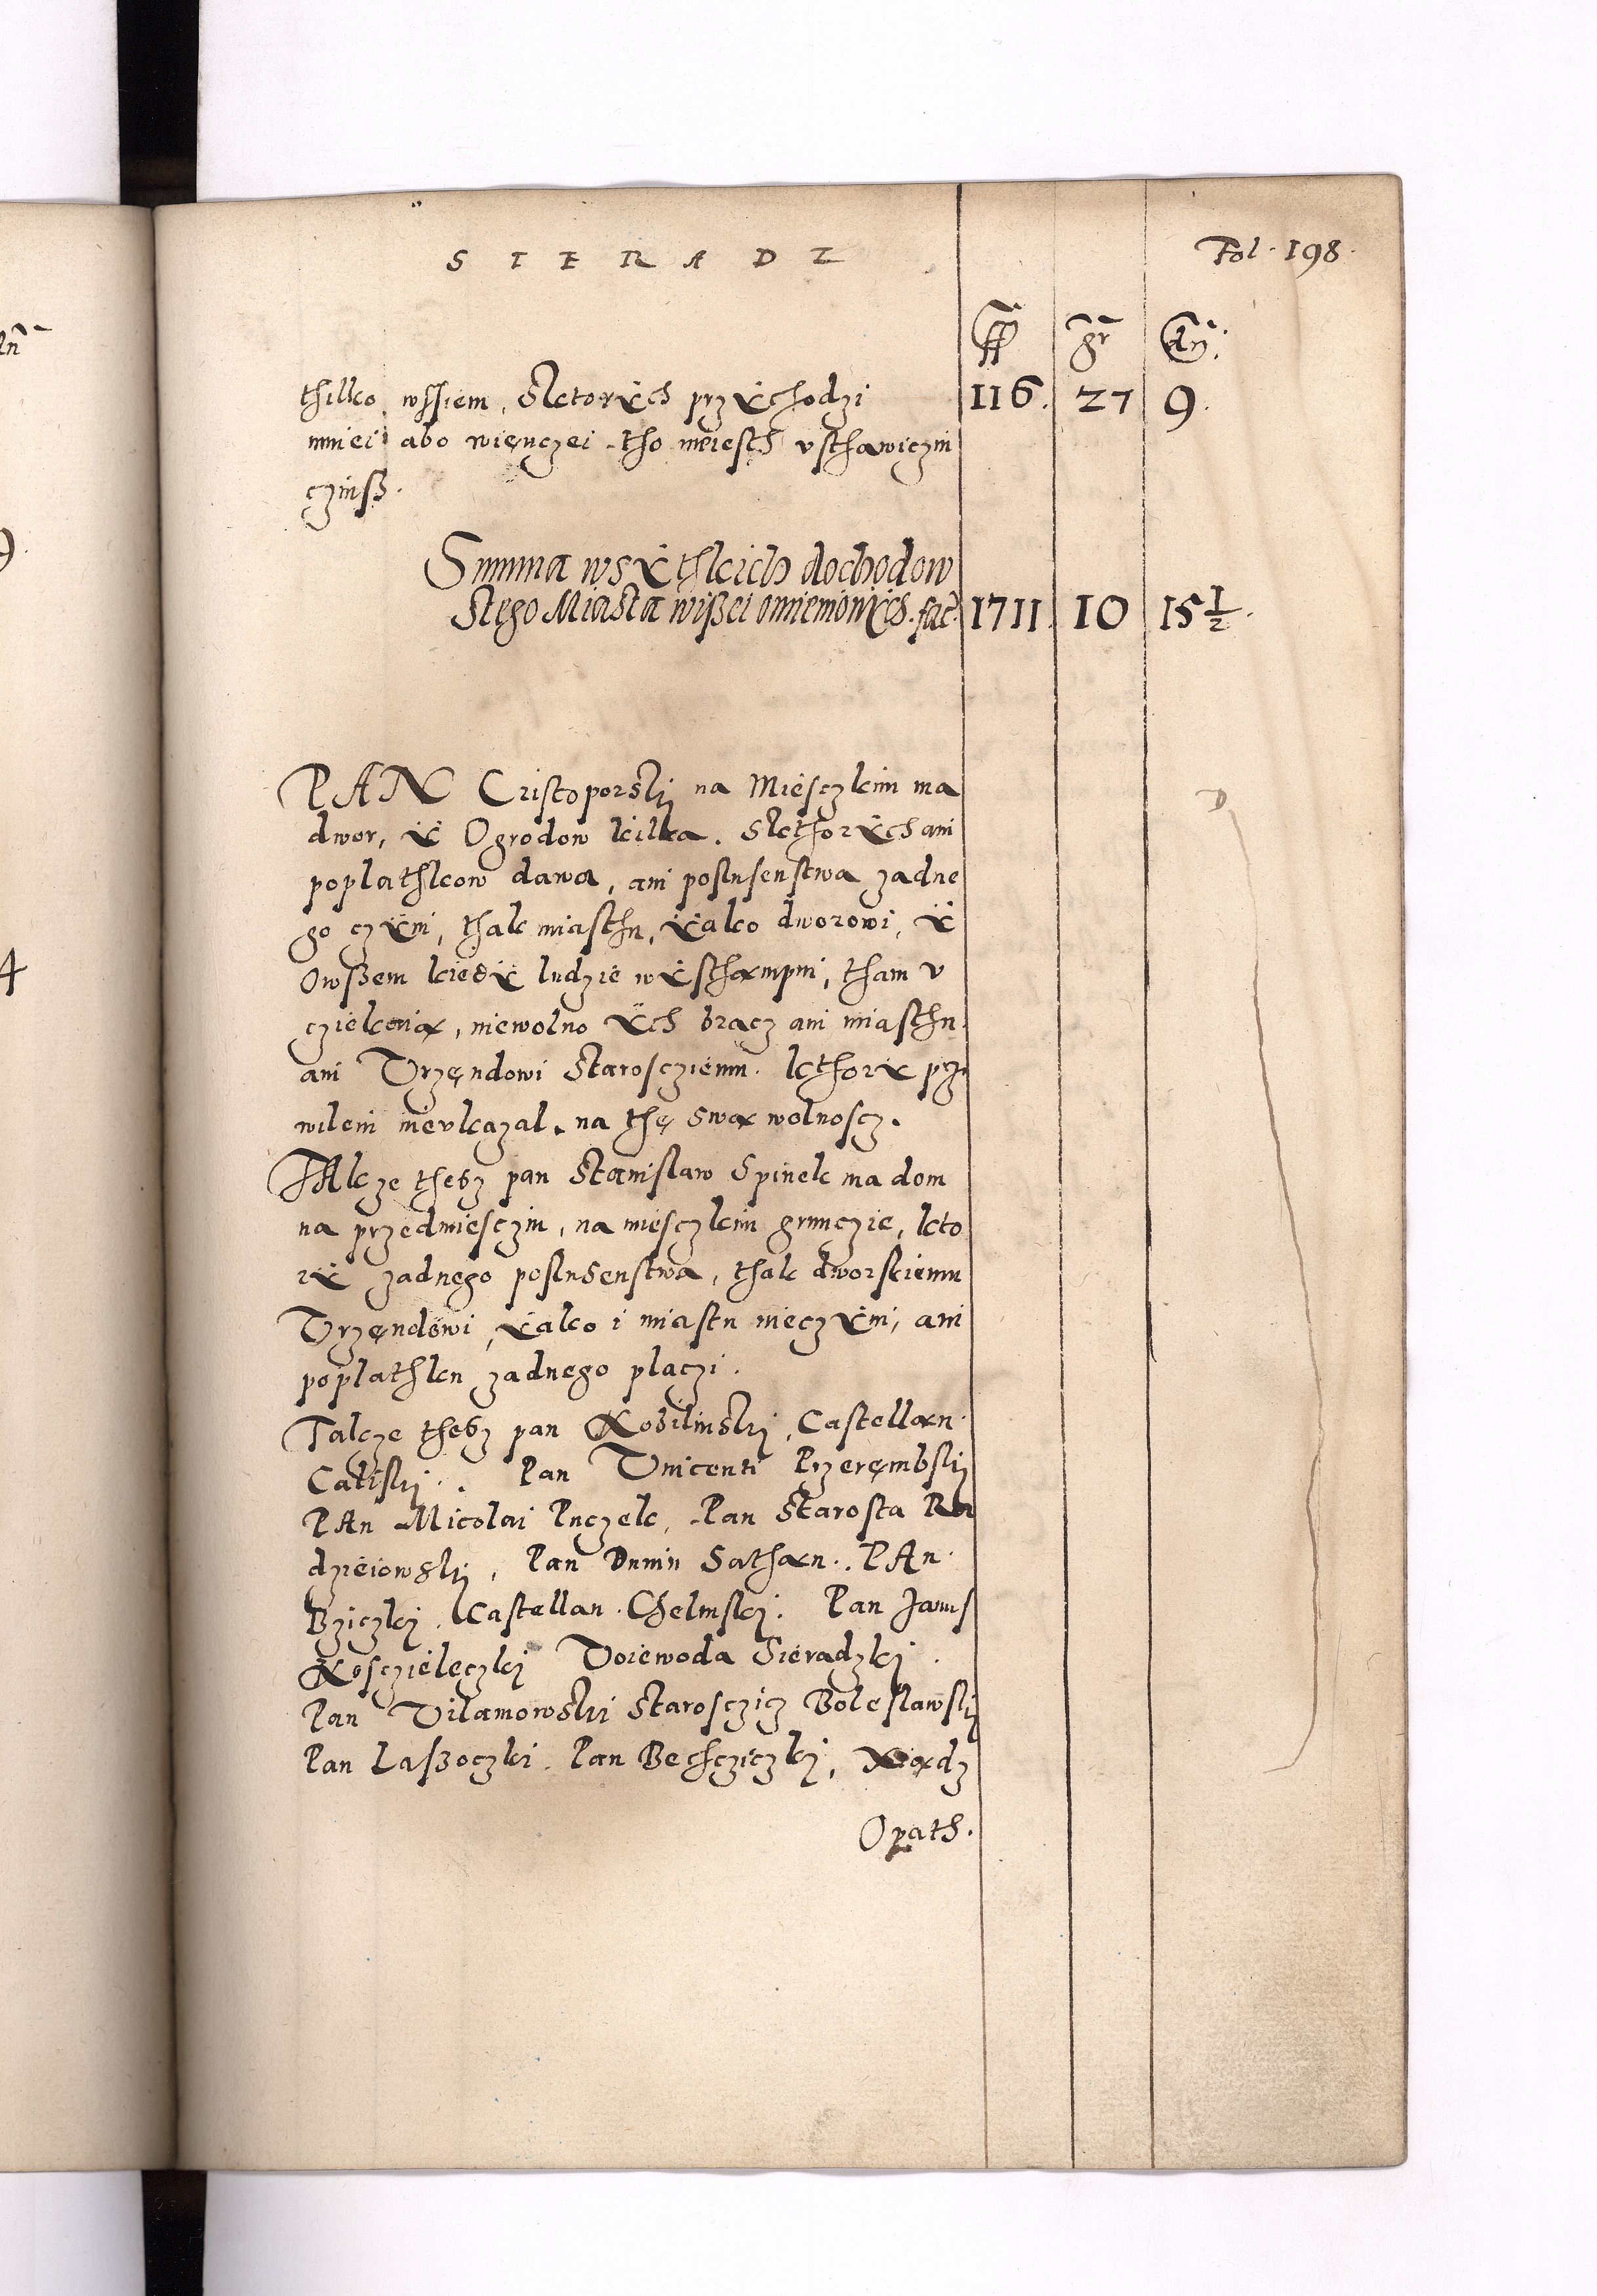 SIERADZ
Fol. 198.
ff gr dn.
thilko wssiem, Sktorÿch przÿchodzi 116. 27 9.
mniei abo wienczei. tho iniesth vsthawiczni
czinsß.
Summa wsÿthkich dochodow
Stego Miasta wißei omienionÿch. fac. 1711 10 15 1/2.
PAN Cristoporskij na Miesczkim ma
dwor, ÿ Ogrodow kilka. Skthorÿch ani
poplathkow dawa, ani poslusenstwa zadne
go czÿni, thak miasthu, ÿako dworowi, ÿ
Owßem kiedÿ ludzie wÿsthampni, tham v
cziekaia, niewolno ÿch bracz ani miasthu.
ani Vrzęndowi Starosciemu. kthorÿ prz
wileiu nievkazal. na thę swa wolnoscz.
TAkze thesz pan Stanislaw Spinek ma dom
na przedmiesczin, na miesczkim grunczie, kto
rÿ zadnego poslusenstwa, thak dworskiemu
Vrzęndowi, ÿako i miastu nieczÿni, ani
poplathku zadnego placzi.
Takze thesz pan Kobilinskij, Castellan.
Caliskij. Pan Vnicenti Przerembskij
PAn Micolai Puczek, Pan Starosta Ra
dzieiowskij, Pan Dunin Sathan. PAn.
Bziczkj. Castellan. Chelmskj. Pan Janus
Kosczieleczkj Voiewoda Sieradzkj.
Pan Vilamowskij Starosczicz Boleslawskij
Pan Laßoczki. Pan Bechcziczkj, Xiadz
Opath.